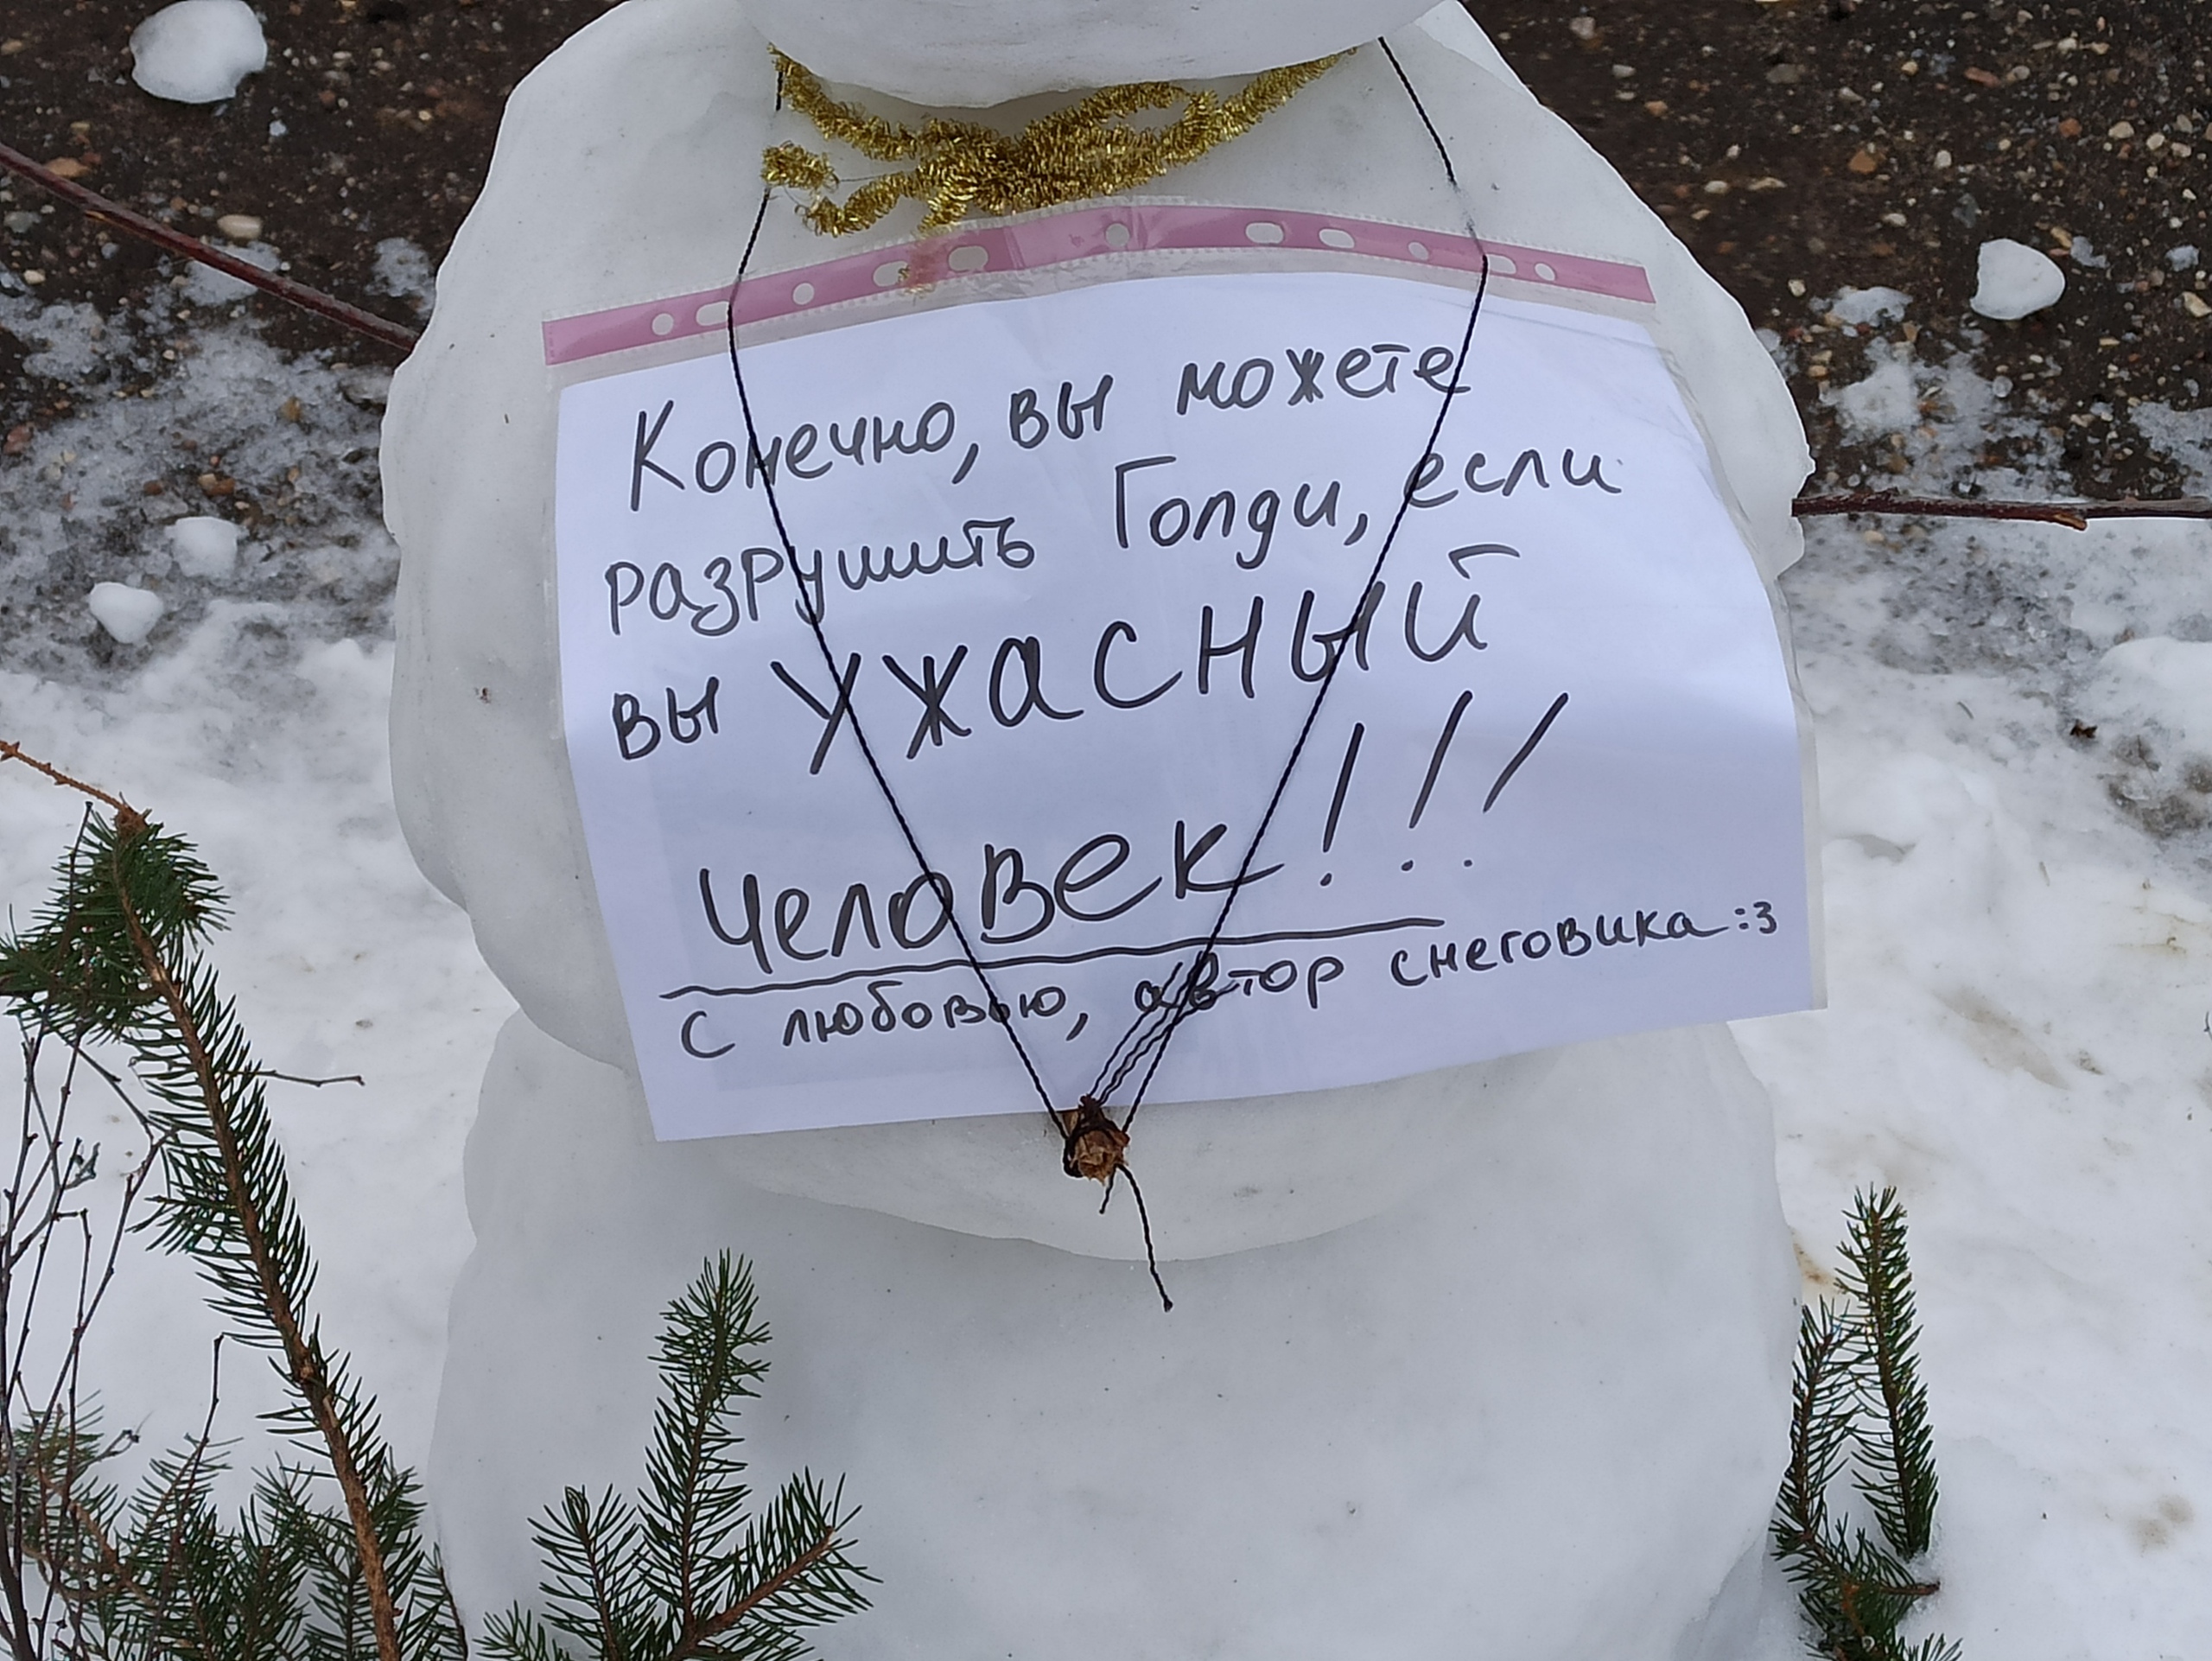 Конечно, вы можете
разрушить Голди, если
вы УЖАСНЫЙ
Человек!!!
с любовью, автор снеговика :3